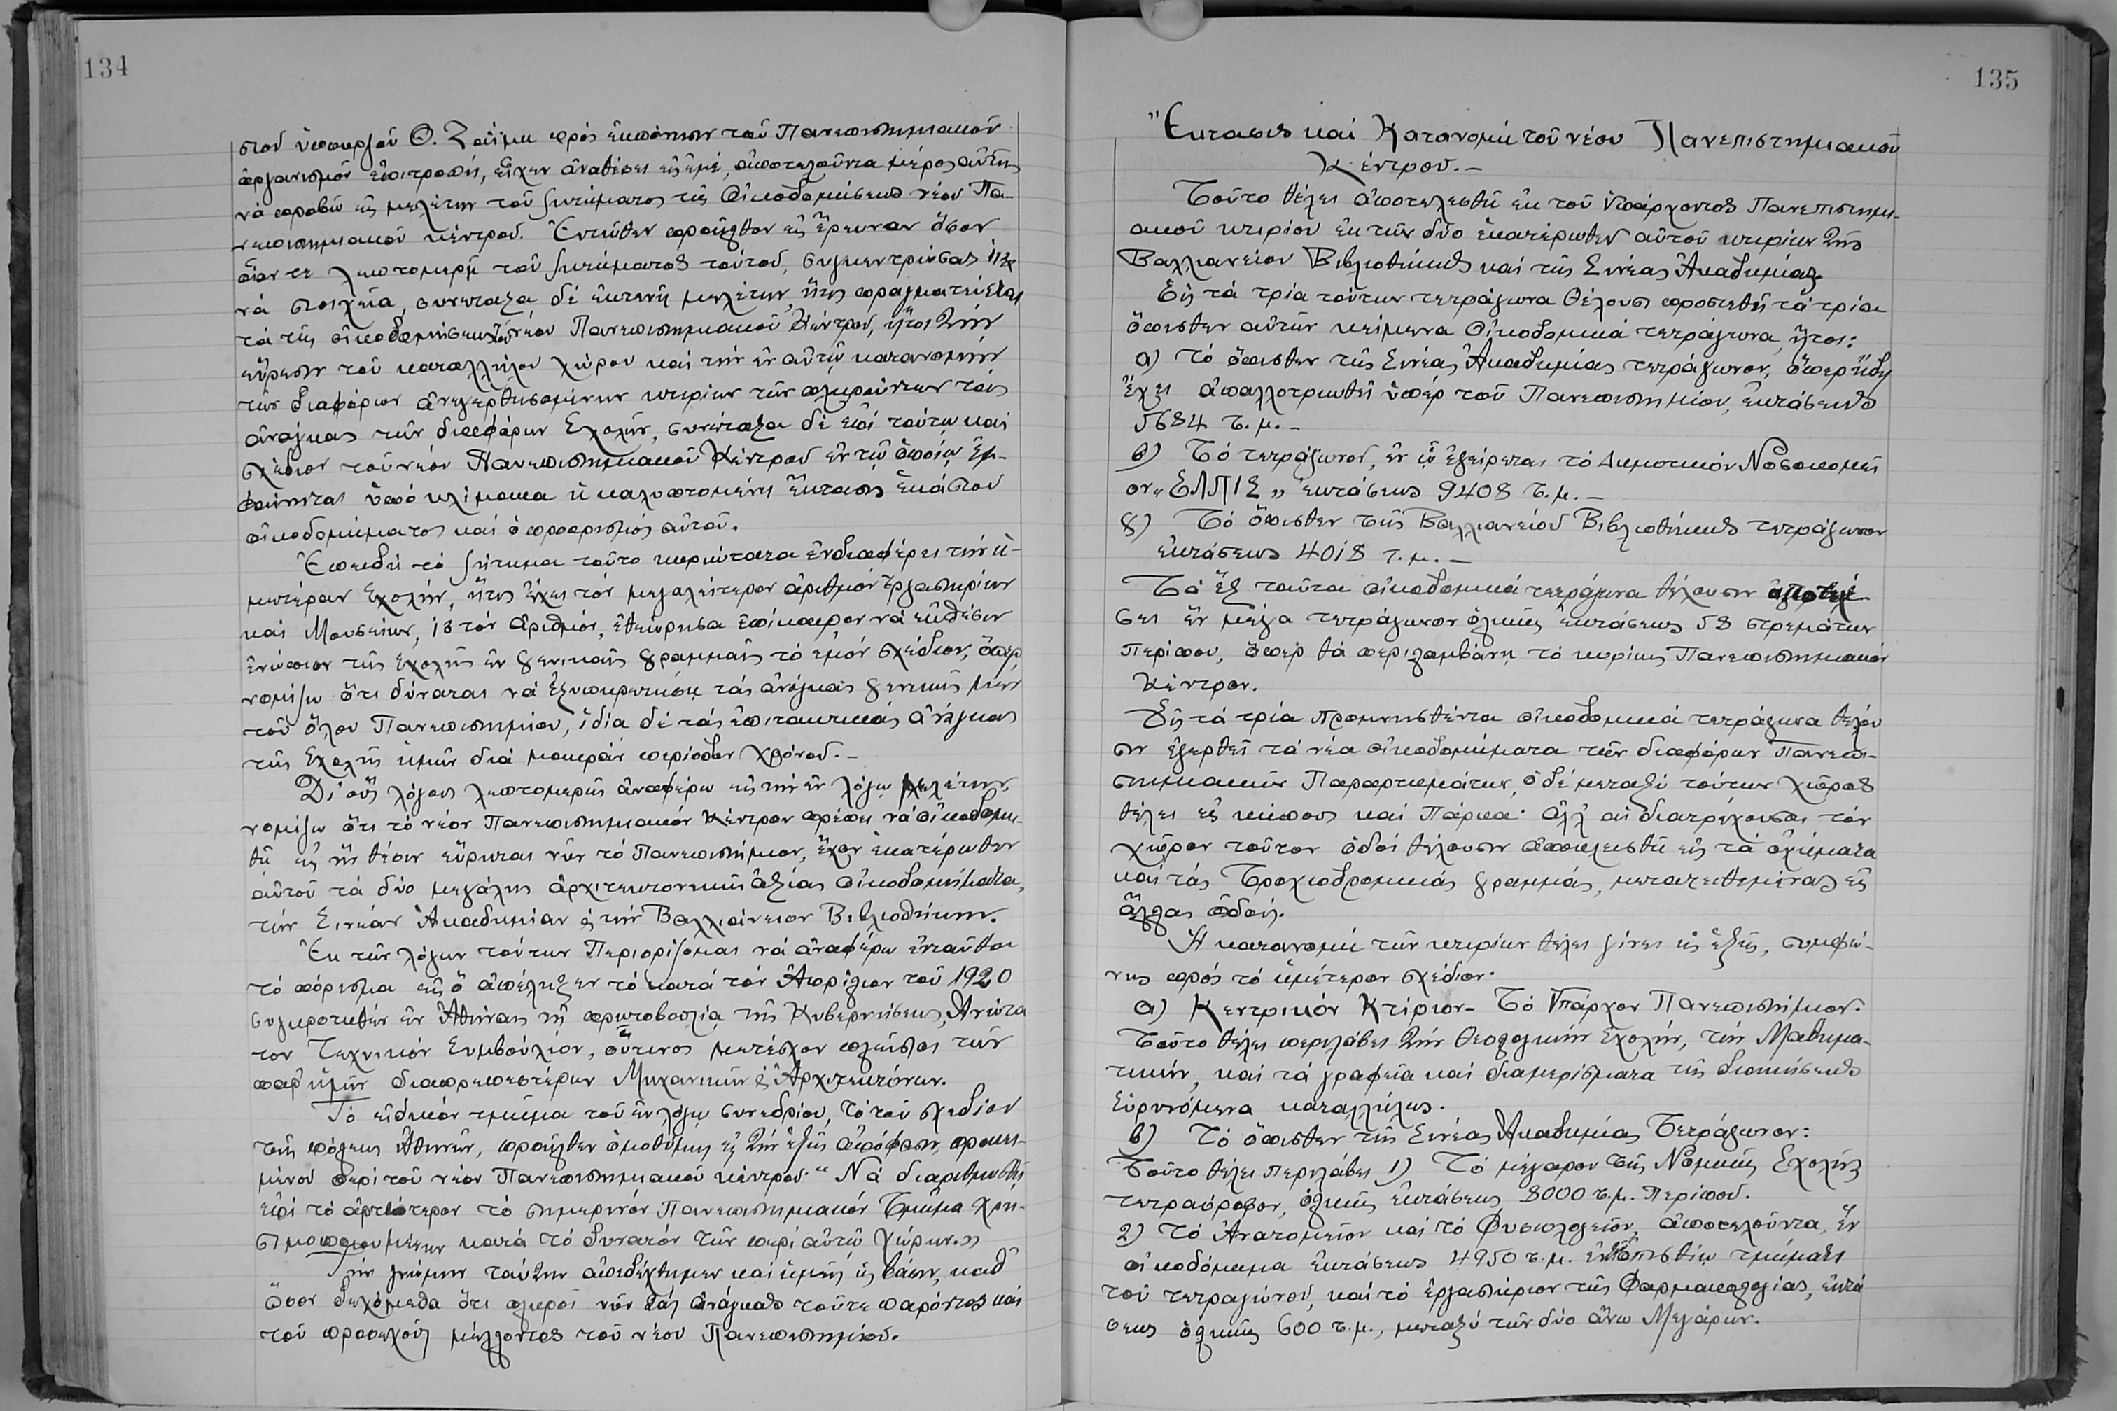 134
στου ὑπουργοῦ Θ. Ζαΐμη πρός ἐκπόνησιν τοῦ Πανεπιστημιακοῦ
ὀργανισμοῦ ἐπιτροπή, εἶχεν ἀναθέσει εἰς ἐμέ, ἀποτελοῦντα μέρος αὐτῆς
νά προβῶ εἰς μελέτην τοῦ ζητήματος τῆς οἰκοδομήσεως νέου Πα-
νεπιστημιακοῦ κέντρου. Ἐντεῦθεν προῆλθον εἰς ἔρευναν ὅσον
οἷόν τε λεπτομερῆ τοῦ ζητήματος τούτου, συγκεντρώσας
νά στοιχεῖα, συνέταξα δέ ἐκτενῆ μελέτην, ἥτις πραγματεύεται
τά τῆς οἰκοδομήσεως τοῦ νέου Πανεπιστημιακοῦ Κέντρου, ἤτοι τήν
εὕρεσιν τοῦ καταλλήλου χώρου καί τήν ἐν αὐτῷ κατανομήν
τῶν διαφόρων ἀνεγερθησομένων κτιρίων τῶν πληρούντων τάς
ἀνάγκας τῶν διαφόρων Σχολῶν, συνέταξα δέ ἐπί τούτῳ καί
σχέδιον τοῦ νέου Πανεπιστημιακοῦ Κέντρου ἐν τῷ ὁποίῳ ἐμ-
φαίνεται ὑπό κλίμακα ἡ καλυπτομένη ἔκτασις ἑκάστου
οἰκοδομήματος καί ὁ προορισμός αὐτοῦ.
Ἐπειδή τό ζήτημα τοῦτο κυριώτατα ἐνδιαφέρει τήν ἡ-
μετέραν Σχολήν, ἥτις ἔχει τόν μεγαλείτερον ἀριθμόν Ἐργαστηρίων
καί Μουσείων, 18 τόν ἀριθμόν, ἐθεώρησα ἐπίκαιρον νά ἐκθέσω
ἐνώπιον τῆς Σχολῆς ἐν γενικαῖς γραμμαῖς τό ἐμόν σχέδιον, ὅπερ,
νομίζω ὅτι δύναται νά ἐξυπηρετήσῃ τάς ἀνάγκας γενικῶς μέν
τοῦ ὅλου Πανεπιστημίου, ἰδίᾳ δέ τάς ἐπιτακτικάς ἀνάγκας
τῆς Σχολῆς ἡμῶν διά μακράν περίοδον χρόνου.-
Δι' οὕς λόγους λεπτομερῶς ἀναφέρω εἰς τήν ἐν λόγῳ μελέτην,
νομίζω ὅτι τό νέον Πανεπιστημιακόν Κέντρον πρέπει νά οἰκοδομη-
θῇ εἰς ἥν θέσιν εὕρηται νῦν τό Πανεπιστήμιον, ἔχον ἑκατέρωθεν
αὐτοῦ τά δύο μεγάλης ἀρχιτεκτονικῆς ἀξίας οἰκοδομήματα,
τήν Σιναίαν Ἀκαδημίαν & τήν Βαλλιάνειον Βιβλιοθήκην.
Ἐκ τῶν λόγων τούτων Περιορίζομαι νά ἀναφέρω ἐνταῦθα
τό πόρισμα εἰς ὅ ἀπέληξεν τό κατά τόν Ἀπρίλιον τοῦ 1920
συγκροτηθέν ἐν Ἀθήναις τῇ πρωτοβουλίᾳ τῆς Κυβερνήσεως, Ἀνώτα
τον Τεχνικόν Συμβούλιον, οὗτινος μετέσχον πλεῖστοι τῶν
παρ' ἡμῖν διαπρεπεστέρων Μηχανικῶν & Ἀρχιτεκτόνων.
Τό εἰδικόν τμῆμα τοῦ ἐν λόγῳ συνεδρίου, τό τοῦ σχεδίου
τῆς πόλεως Ἀθηνῶν, προῆλθεν ὁμοθύμως εἰς τήν ἑξῆς ἀπόφασιν, προκει-
μένου περί τοῦ νέου Πανεπιστημιακοῦ κέντρου "Νά διαρυθμισθῇ
ἐπί τό ἀρτιότερον τό σημερινόν Πανεπιστημιακόν Τμῆμα χρη-
σιμοποιουμένων κατά τό δυνατόν τῶν περί αὐτῶ χώρων."
Τήν γνώμην ταύτην ἀπεδέχθημεν καί ἡμεῖς ὡς βάσιν, καθ'
ὅσον δεχόμεθα ὅτι πληροῖ νῦν τάς ἀνάγκας τοῦτε παρόντος καί
τοῦ προσεχοῦς μέλλοντος τοῦ νέου Πανεπιστημίου.
135
Ἔκτασις καί Κατανομή τοῦ νέου Πανεπιστημιακοῦ
Κέντρου.-
Τοῦτο θέλει ἀποτελεσθῆ ἐκ τοῦ ὑπάρχοντος Πανεπιστημι-
ακοῦ κτιρίου ἐκ τῶν δύο ἑκατέρωθεν αὐτοῦ κτιρίων τῆς
Βαλλιανείου Βιβλιοθήκης καί τῆς Σινέας Ἀκαδημίας
Εἰς τά τρία τούτων τετράγωνα θέλουσι προστεθῆ τά τρία
ὄπισθεν αὐτῶν κείμενα Οἰκοδομικά τετράγωνα, ἤτοι:
α) τό ὄπισθεν τῆς Σινέας Ἀκαδημίας τετράγωνον, ὅπερ ἤδη
ἔχει ἀπαλλοτριωθεῖ ὑπέρ τοῦ Πανεπιστημίου, ἐκτάσεως
5684 τ. μ.-
β) Τό τετράγωνον, ἐν ᾧ ἐξείρεται τό Δημοτικόν Νοσοκομεῖ
ον „ΕΛΠΙΣ„ ἐκτάσεως 9408 τ. μ.-
γ) Τό ὄπισθεν τῆς Βαλλιανείου Βιβλιοθήκης τετράγωνον
ἐκτάσεως 4018 τ. μ.-
Τά ἕξ ταῦτα οἰκοδομικά τετράγωνα θέλουσιν ἀποτελέ
σει ἕν μέγα τετράγωνον ὁλικῆς ἐκτάσεως 58 στρεμάτων
περίπου, ὅπερ θά περιλαμβάνῃ τό κυρίως Πανεπιστημιακόν
Κέντρον.
Εἰς τά τρία προμνησθέντα οἰκοδομικά τετράγωνα θέλου
σιν ἐγερθεῖ τά νέα οἰκοδομήματα τῶν διαφόρων Πανεπι-
στημιακῶν Παραρτημάτων, ὁ δέ μεταξύ τούτων χῶρος
θέλει εἰς κήπους καί Πάρκα· ἀλλ' αἱ διατρέχουσαι τόν
χῶρον τοῦτον ὁδοί θέλουσιν ἀποκλεισθῆ εἰς τά ὀχήματα
καί τάς Τροχιοδρομικάς γραμμάς, μετατεθειμένας εἰς
ἄλλας ὁδούς.
Ἡ κατανομή τῶν κτιρίων θέλει γίνει ὡς ἑξῆς, συμφώ-
νως πρός τό ἡμέτερον σχέδιον·
α) Κεντρικόν Κτίριον- Τό Ὑπάρχον Πανεπιστήμιον.
Τοῦτο θέλει περιλάβει τήν Θεολογικήν Σχολήν, τήν Μαθημα-
τικήν, καί τά γραφεῖα καί διαμερίσματα τῆς διοικήσεως
Εὐρυνόμενα καταλλήλως.
β) Τό ὄπισθεν τῆς Σινέας Ἀκαδημίας Τετράγωνον:
Τοῦτο θέλει περιλάβει 1) Τό μέγαρον τῆς Νομικῆς Σχολῆς
τετραόροφον, ὁλικῆς ἐκτάσεως 8000 τ.μ. περίπου.
2) Τό Ἀνατομεῖον καί τό Φυσιολογεῖον, ἀποτελοῦντα, ἕν
οἰκοδόμημα ἐκτάσεως 4950 τ.μ. ἐν τῷ ὀπισθίῳ τμήματι
τοῦ τετραγώνου, καί τό ἐργαστήριον τῆς Φαρμακολογίας, ἐκτά
σεως ὁλικῆς 600 τ.μ., μεταξύ τῶν δύο ἄνω Μεγάρων.